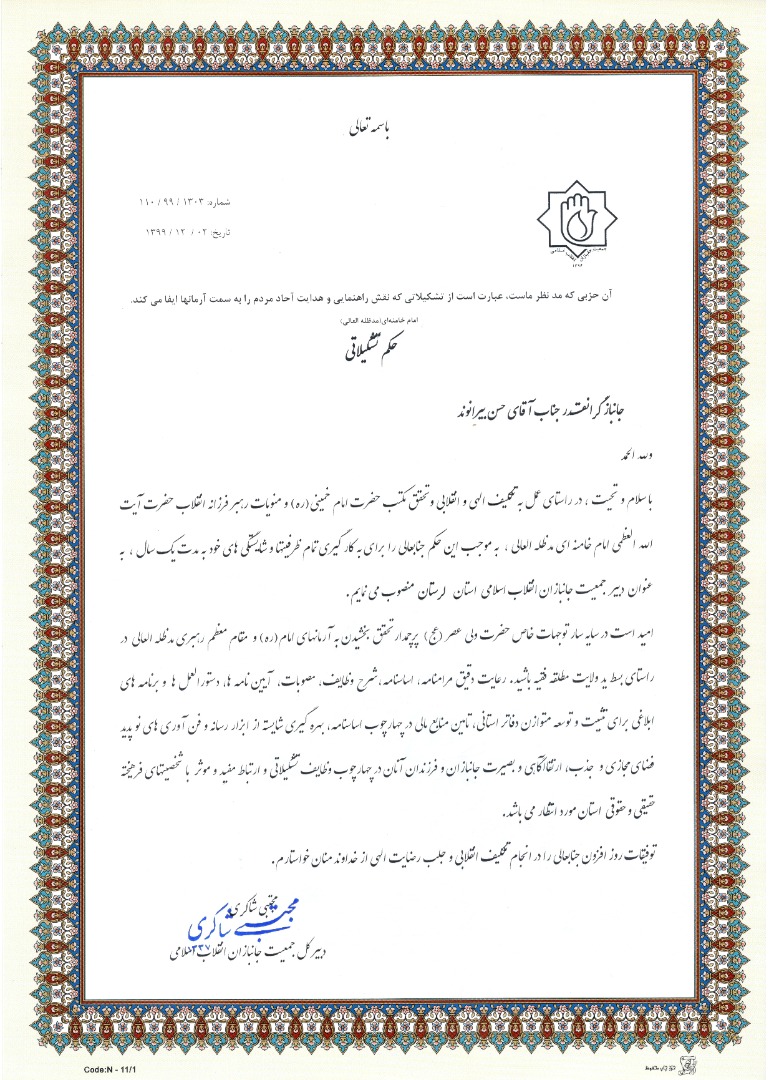 باسمه تعالی
شماره: ۱۳۰۳ / ۹۹ / ۱۱۰
تاریخ: ۰۲ / ۱۲ / ۱۳۹۹
جمعیت جانبازان انقلاب اسلامی
آن حزبی که مد نظر ماست، عبارت است از تشکیلاتی که نقش راهنمایی و هدایت آحاد مردم را به سمت آرمانها ایفا می کند.
امام خامنه‌ای(مدظله العالی)
حکم تشکیلاتی
جانباز گرانقدر جناب آقای حسن بیرانوند
ولله الحمد
با سلام و تحیت ، در راستای عمل به تکلیف الهی و انقلابی و تحقق مکتب حضرت امام خمینی(ره) و منویات رهبر فرزانه انقلاب حضرت آیت
الله العظمی امام خامنه ای مدظله العالی ، به موجب این حکم جنابعالی را برای به کارگیری تمام ظرفیتها و شایستگی های خود به مدت یک سال ، به
عنوان دبیر جمعیت جانبازان انقلاب اسلامی استان لرستان منصوب می نمایم.
امید است در سایه سار توجهات خاص حضرت ولی عصر (عج) پرچمدار تحقق بخشیدن به آرمانهای امام(ره) و مقام معظم رهبری مدظله العالی در
راستای بسط ید ولایت مطلقه فقیه باشید. رعایت دقیق مرامنامه، اساسنامه، شرح وظایف، مصوبات، آیین نامه ها، دستورالعمل ها و برنامه های
ابلاغی برای تثبیت و توسعه متوازن دفاتر استانی، تامین منابع مالی در چهارچوب اساسنامه، بهره گیری شایسته از ابزار رسانه و فن آوری های نو پدید
فضای مجازی و جذب، ارتقا آگاهی و بصیرت جانبازان و فرزندان آنان در چهارچوب وظایف تشکیلاتی و ارتباط مفید و موثر با شخصیتهای فرهیخته
حقیقی و حقوقی استان مورد انتظار می باشد.
توفیقات روز افزون جنابعالی را در انجام تکلیف انقلابی و جلب رضایت الهی از خداوند منان خواستارم.
مجتبی شاکری
مجتبی شاکری
دبیر کل جمعیت جانبازان انقلاب اسلامی
۲۳۷
Code:N - 11/1